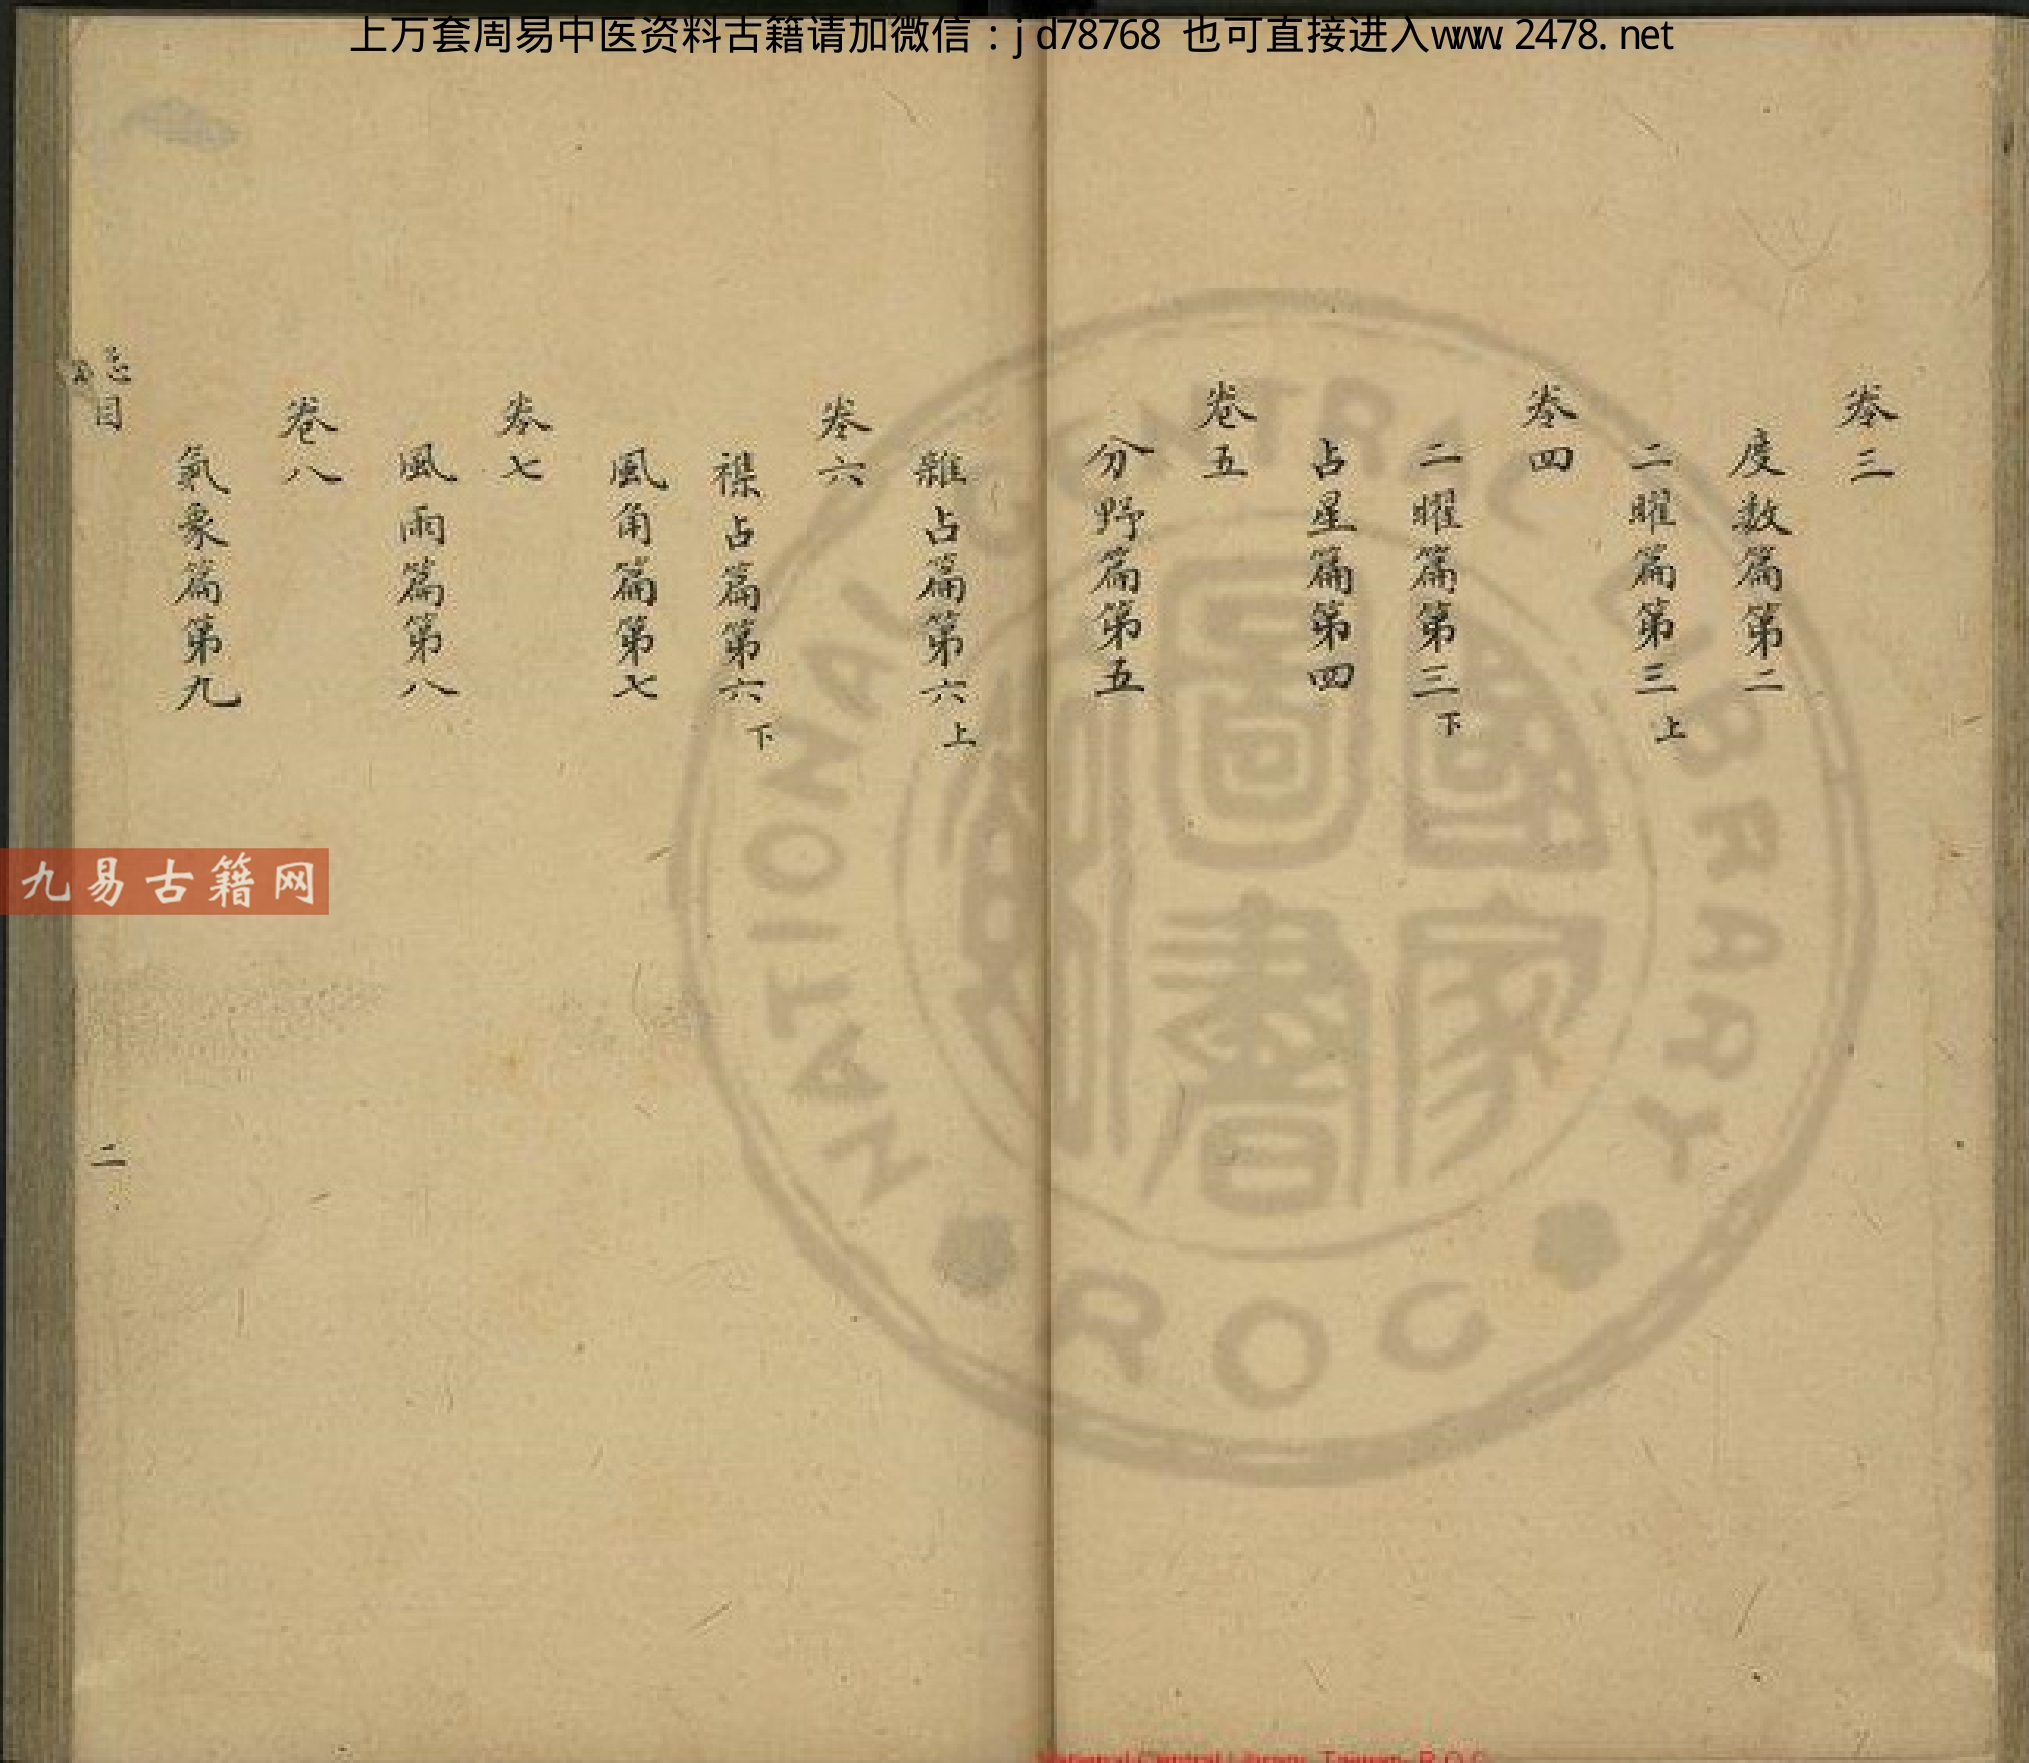 上万套周易中医资料古籍请加微信：jd78768 也可直接进入www.2478.net
卷三
度数篇第二
二曜篇第三上
卷四
二曜篇第三下
占星篇第四
卷五
分野篇第五
雜占篇第六上
卷六
襍占篇第六下
風角篇第七
卷七
風雨篇第八
卷八
氣象篇第九
目
二
九易古籍网
NATIONAL CENTRAL LIBRARY
ROC
國家圖書館
National Central Library, Taiwan, R.O.C